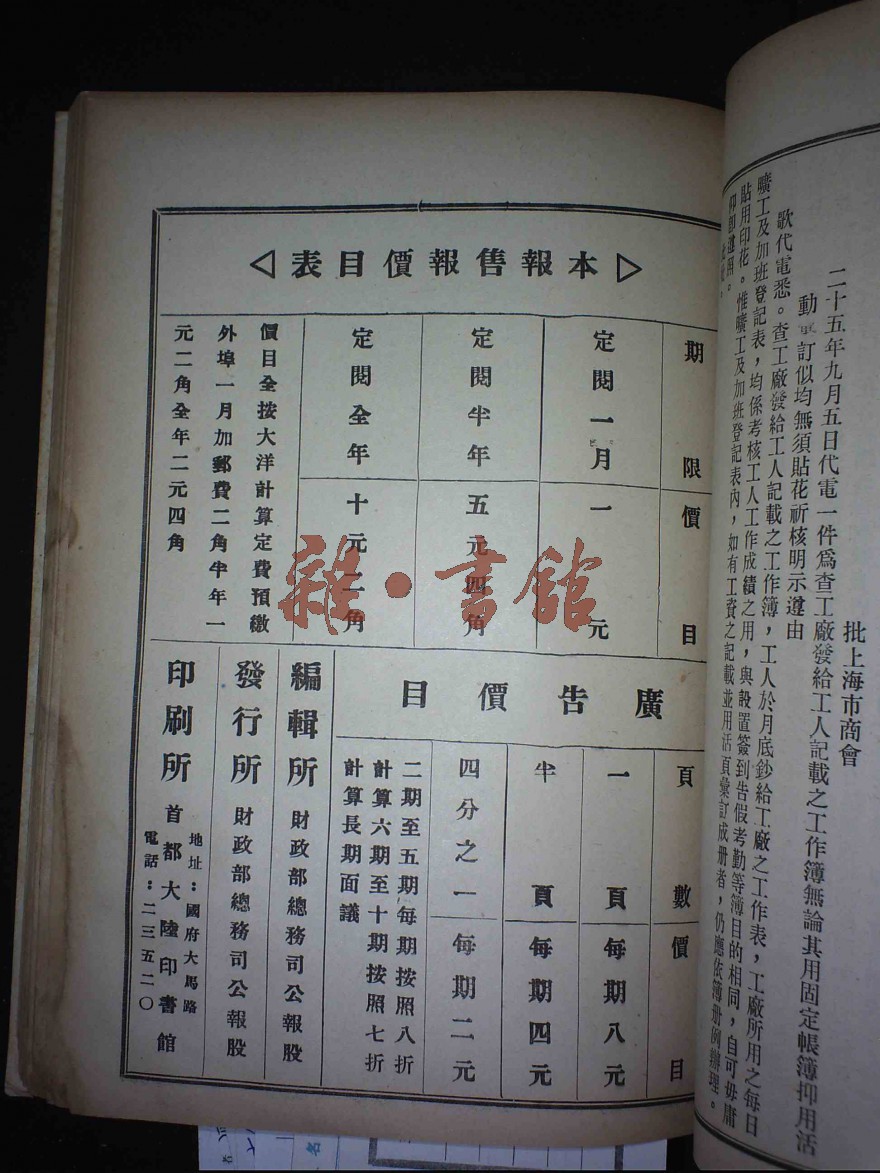 批上海市商會
二十五年九月五日代電一件爲查工廠發給工人記載之工作簿無論其用固定帳簿抑用活
動 訂似均無須貼花祈核明示遵由
歌代電悉。查工廠發給工人記載之工作簿，工人於月底鈔給工廠之工作表，工廠所用之每日
曠工及加班登記表，均係考核工人工作成績之用，與設置簽到告假考勤等簿目的相同，自可毋庸
貼用印花。惟曠工及加班登記表內，如有工資之記載並用活頁彙訂成册者，仍應依簿册例辦理。
仰卽遵照。
本報售報價目表
期限 價目
定閱一月 一元
定閱半年 五元四角
定閱全年 十元二角
價目全按大洋計算定費預繳
外埠一月加郵費二角半年一
元二角全年二元四角
廣告價目
頁數 價目
一頁 每期八元
半頁 每期四元
四分之一 每期二元
二期至五期每期按照八折
計算六期至十期按照七折
計算長期面議
編輯所 財政部總務司公報股
發行所 財政部總務司公報股
印刷所 首都大陸印書館
地址：國府大馬路
電話：二三五二〇
雜·書館